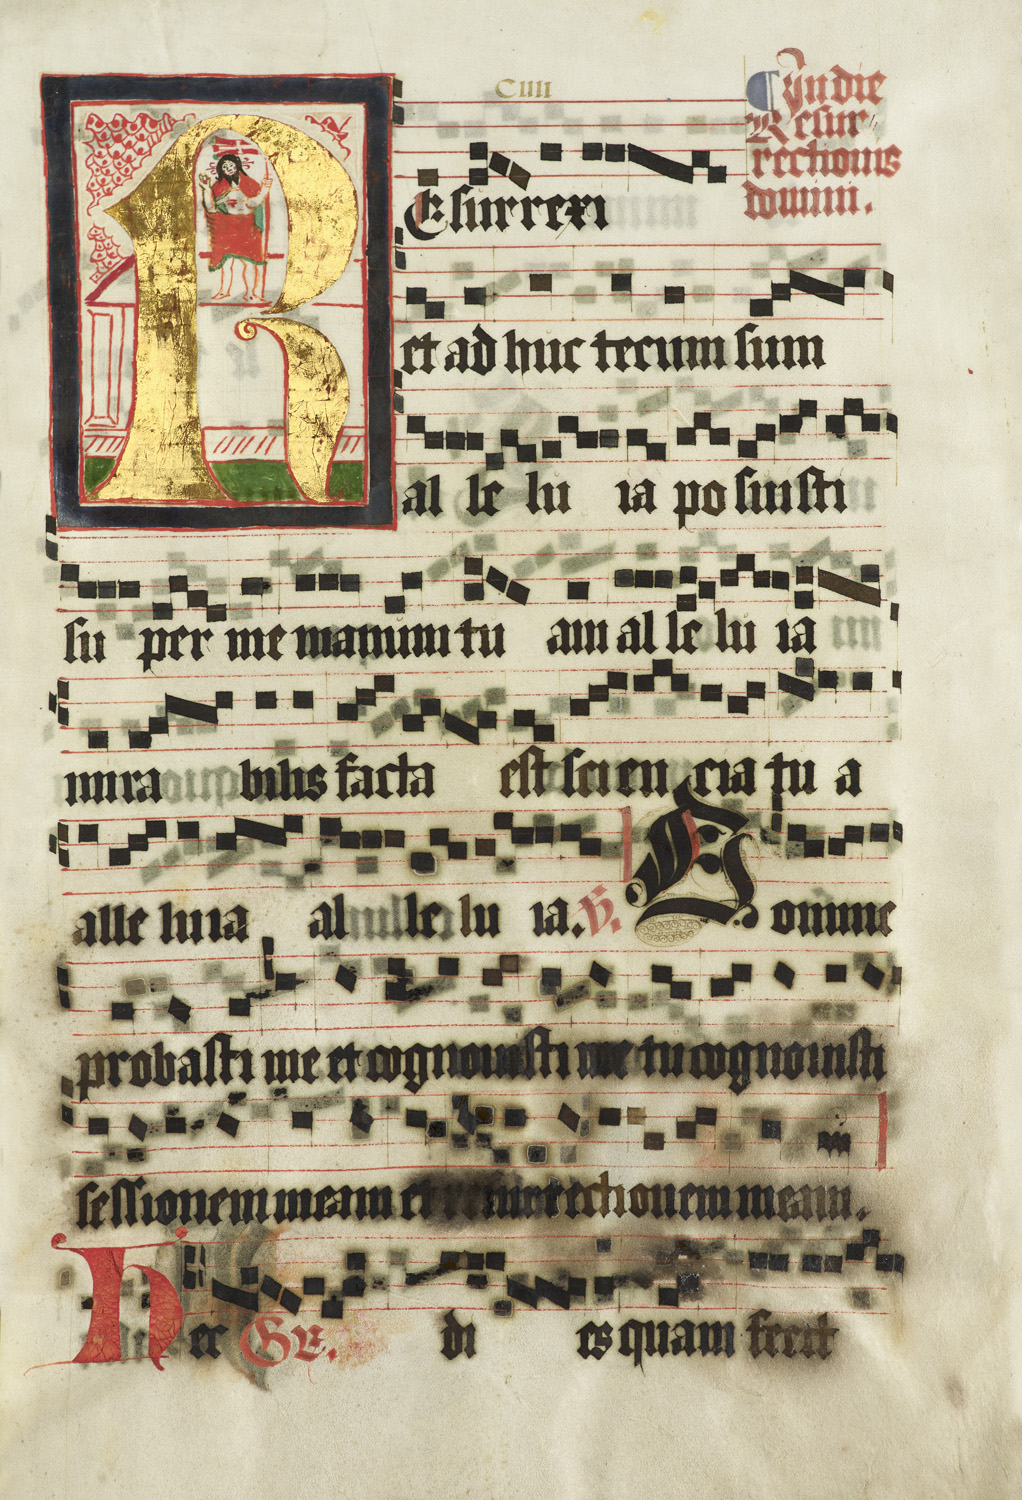 CIIII
In die
Resur
rectionis
domini.
Resurrexi
et ad huc tecum sum
al le lu ia po suisti
su per me manum tu am al le lu ia
mira bilis facta est scien cia tu a
alle luia al le lu ia. V. Domine
probasti me et cognouisti me tu cognouisti
sessionem meam et resurrectionem meam.
Hec Gr. di es quam fecit